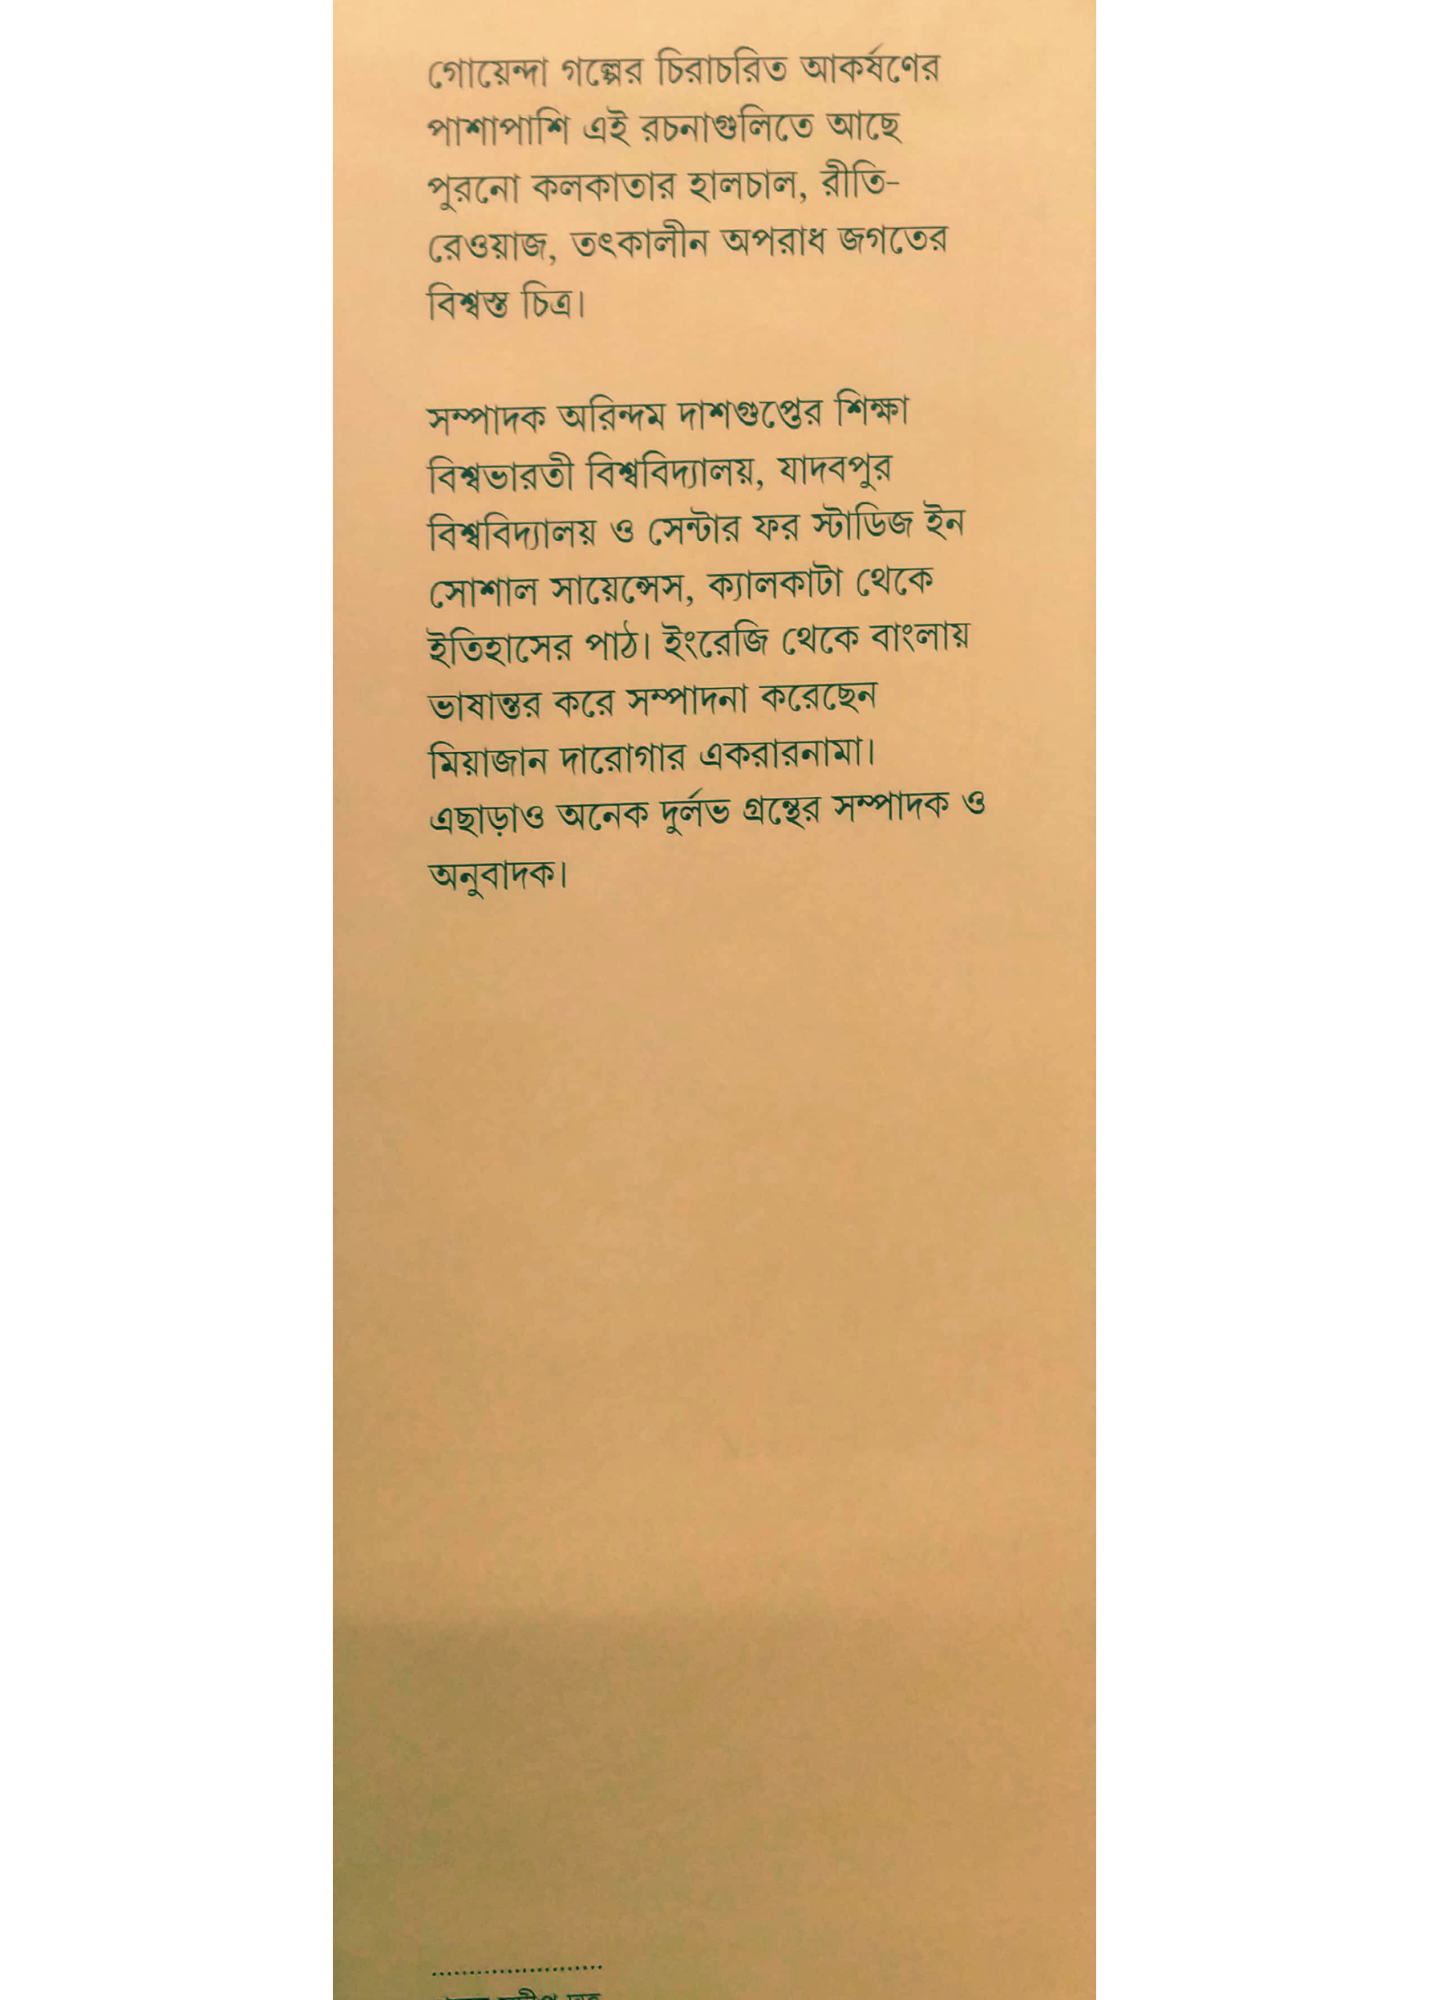 গোয়েন্দা গল্পের চিরাচরিত আকর্ষণের
পাশাপাশি এই রচনাগুলিতে আছে
পুরনো কলকাতার হালচাল, রীতি-
রেওয়াজ, তৎকালীন অপরাধ জগতের
বিশ্বস্ত চিত্র।
সম্পাদক অরিন্দম দাশগুপ্তের শিক্ষা
বিশ্বভারতী বিশ্ববিদ্যালয়, যাদবপুর
বিশ্ববিদ্যালয় ও সেন্টার ফর স্টাডিজ ইন
সোশাল সায়েন্সেস, ক্যালকাটা থেকে
ইতিহাসের পাঠ। ইংরেজি থেকে বাংলায়
ভাষান্তর করে সম্পাদনা করেছেন
মিয়াজান দারোগার একরারনামা।
এছাড়াও অনেক দুর্লভ গ্রন্থের সম্পাদক ও
অনুবাদক।